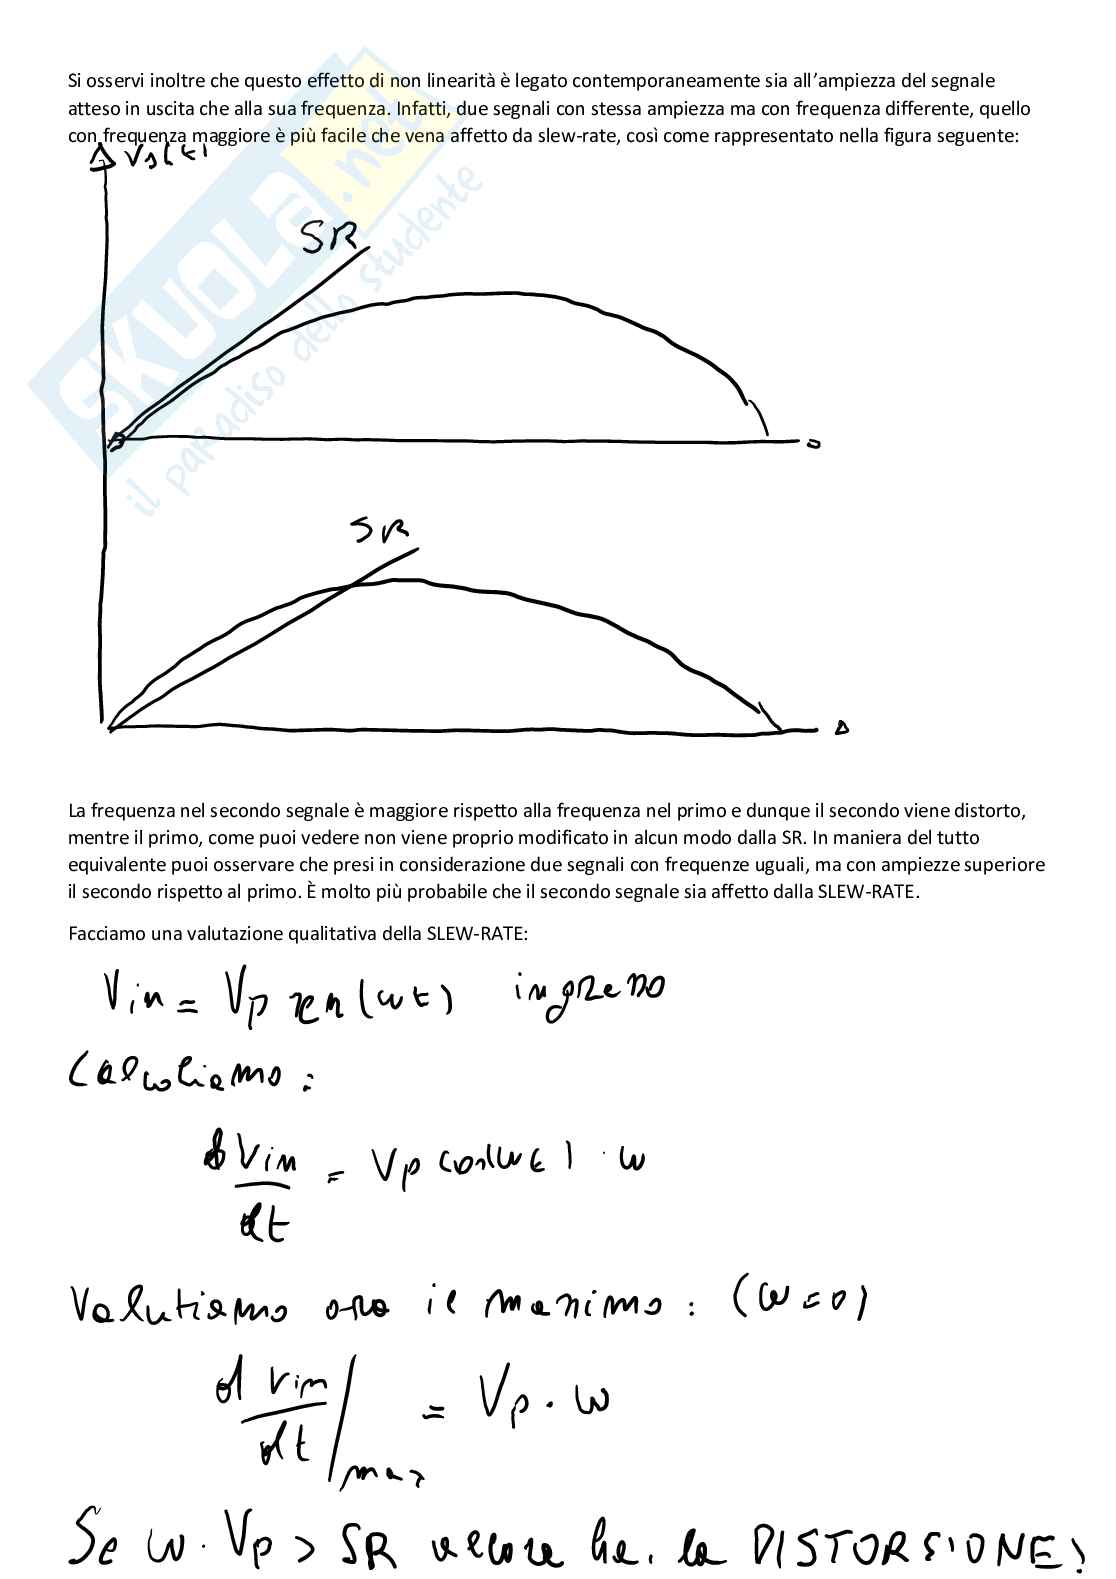 Si osservi inoltre che questo effetto di non linearità è legato contemporaneamente sia all'ampiezza del segnale
atteso in uscita che alla sua frequenza. Infatti, due segnali con stessa ampiezza ma con frequenza differente, quello
con frequenza maggiore è più facile che vena affetto da slew-rate, così come rappresentato nella figura seguente:
Vs(t)
SR
SR
SKUOLA.net
il paradiso dello studente
La frequenza nel secondo segnale è maggiore rispetto alla frequenza nel primo e dunque il secondo viene distorto,
mentre il primo, come puoi vedere non viene proprio modificato in alcun modo dalla SR. In maniera del tutto
equivalente puoi osservare che presi in considerazione due segnali con frequenze uguali, ma con ampiezze superiore
il secondo rispetto al primo. È molto più probabile che il secondo segnale sia affetto dalla SLEW-RATE.
Facciamo una valutazione qualitativa della SLEW-RATE:
Vin = Vp sen(ωt) ingresso
Calcoliamo:
dVin/dt = Vp cos(ωt) · ω
Valutiamo ora il massimo: (ω=0)
dVin/dt |max = Vp · ω
Se ω · Vp > SR allora ho la DISTORSIONE!